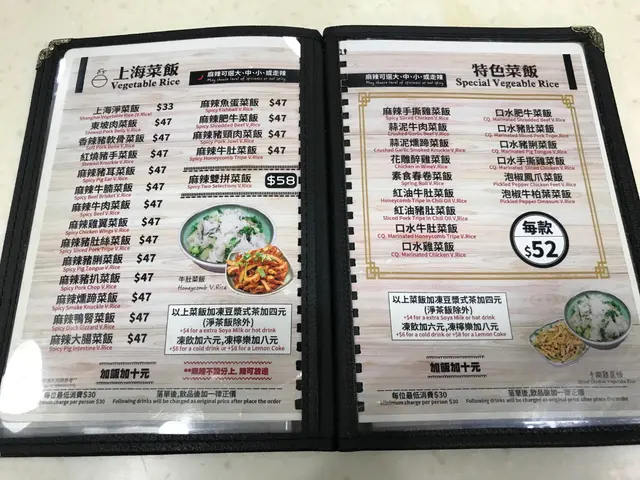 上海菜飯
Vegetable Rice
麻辣可選大、中、小、或走辣
May choose level of spiciness or not spicy
上海淨菜飯 $33
Shanghai Vegetable Rice (V.Rice)
東坡肉菜飯 $47
Stewed Pork Belly V.Rice
香辣豬軟骨菜飯 $47
Soft Pork Bone V.Rice
紅燒豬手菜飯 $47
Stewed Knuckle V.Rice
麻辣豬耳菜飯 $47
Spicy Pig Ear V.Rice
麻辣牛腩菜飯 $47
Spicy Beef Brisket V.Rice
麻辣牛肉菜飯 $47
Spicy Beef V.Rice
麻辣雞翼菜飯 $47
Spicy Chicken Wings V.Rice
麻辣豬肚絲菜飯 $47
Spicy Sliced Pork Tripe V.Rice
麻辣豬脷菜飯 $47
Spicy Pig Tongue V.Rice
麻辣豬扒菜飯 $47
Spicy Pork Chop V.Rice
麻辣燻蹄菜飯 $47
Spicy Smoke Knuckle V.Rice
麻辣鴨腎菜飯 $47
Spicy Duck Gizzard V.Rice
麻辣大腸菜飯 $47
Spicy Pig Intestine V.Rice
麻辣魚蛋菜飯 $47
Spicy Fishball V.Rice
麻辣肥牛菜飯 $47
Spicy Shredded Beef V.Rice
麻辣豬頸肉菜飯 $47
Spicy Pork Jowl V.Rice
麻辣牛肚菜飯 $47
Spicy Honeycomb Tripe V.Rice
麻辣雙拼菜飯 $58
Spicy Two Selections V.Rice
牛肚菜飯
Honeycomb V.Rice
以上菜飯加凍豆漿或茶加四元
(淨茶飯除外)
+$4 for a extra Soya Milk or hot drink
凍飲加六元,凍檸樂加八元
+$6 for a cold drink or +$8 for a Lemon Coke
加飯加十元
**麻辣不設分上, 辣可放邊
每位最低消費$30
Minimum charge per person $30
落單後,飲品後加一律正價
Following drinks will be charged as original price after place the order
麻辣可選大、中、小、或走辣
May choose level of spiciness or not spicy
特色菜飯
Special Vegeable Rice
麻辣手撕雞菜飯
Spicy Sliced Chicken V.Rice
蒜泥牛肉菜飯
Crushed Garlic Beef V.Rice
蒜泥燻蹄菜飯
Crushed Garlic Smoked Knuckle V.Rice
花雕醉雞菜飯
Chicken in Wine V.Rice
素食春卷菜飯
Spring Roll V.Rice
紅油牛肚菜飯
Honeycomb Tripe in Chili Oil V.Rice
紅油豬肚菜飯
Sliced Pork Tripe in Chili Oil V.Rice
口水牛肚菜飯
CQ. Marinated Honeycomb Tripe V.Rice
口水雞菜飯
CQ. Marinated Chicken V.Rice
口水肥牛菜飯
CQ. Marinated Shredded Beef V.Rice
口水豬肚菜飯
CQ. Marinated Sliced Pork Tripe V.Rice
口水豬脷菜飯
CQ. Marinated Pig Tongue V.Rice
口水手撕雞菜飯
CQ. Marinated Sliced Chicken V.Rice
泡椒鳳爪菜飯
Pickled Pepper Chicken Feet V.Rice
泡椒牛柏葉菜飯
Pickled Pepper Omasum V.Rice
每款
$52
以上菜飯加凍豆漿或茶加四元
(淨菜飯除外)
+$4 for a extra Soya Milk or hot drink
凍飲加六元,凍檸樂加八元
+$6 for a cold drink or +$8 for a Lemon Coke
加飯加十元
手撕雞菜飯
Sliced Chicken Vegetable Rice
每位最低消費$30
Minimum charge per person $30
落單後,飲品後加一律正價
Following drinks will be charged as original price after place the order